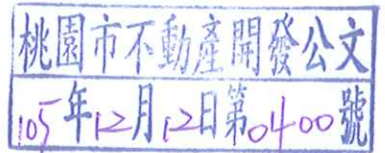 桃園市不動產開發公文
105年12月12日第0400號